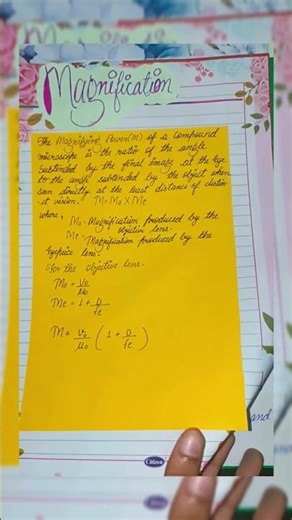 Magnification
The Magnifying Power(M) of a compound
microscope is the ratio of the angle
subtended by the final image at the eye
to the angle subtended by the object when
seen directly at the least distance of distin-
ct vision. M = Mo X Me
where, Mo - Magnification produced by the
objective lens.
Me - Magnification produced by the
Eyepiece lens.
For the objective lens.
Mo = vo/uo
Me = 1 + D/fe
M = vo/uo ( 1 + D/fe )
and